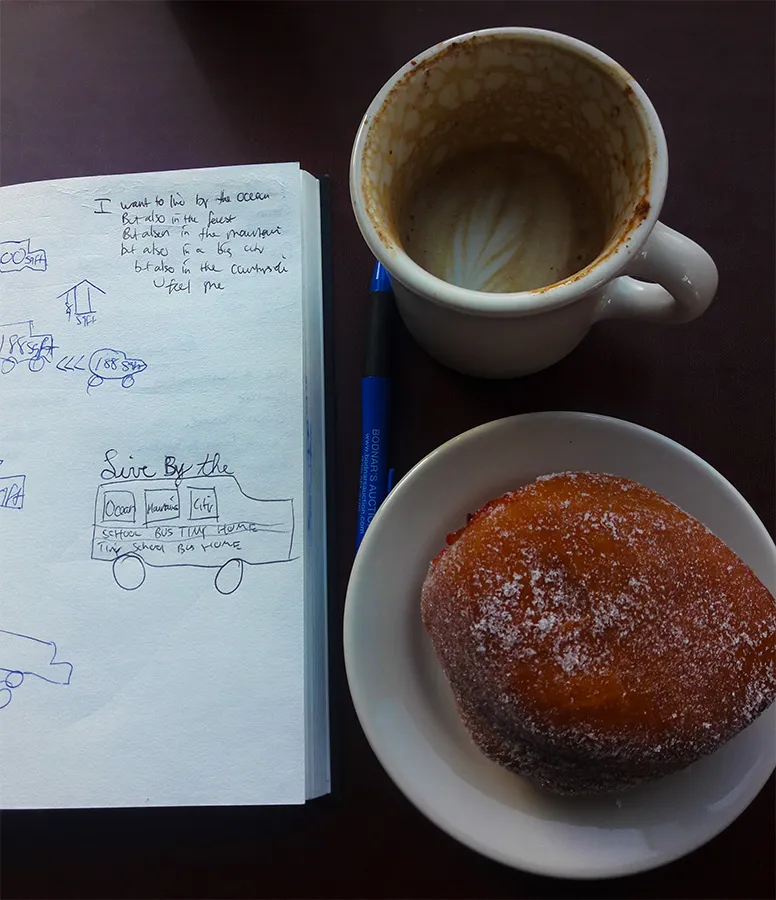 I want to live by the ocean
But also in the forest
But also in the mountain
but also in a big city
but also in the countrysi
U feel me
00 sqft
sqft
188 sqft
<<< 188 sqft
Live By the
Ocean Mountain City
SCHOOL BUS TINY HOME
Tiny School Bus HOME
BODNAR'S AUCTION
www.bodnarsauction.com